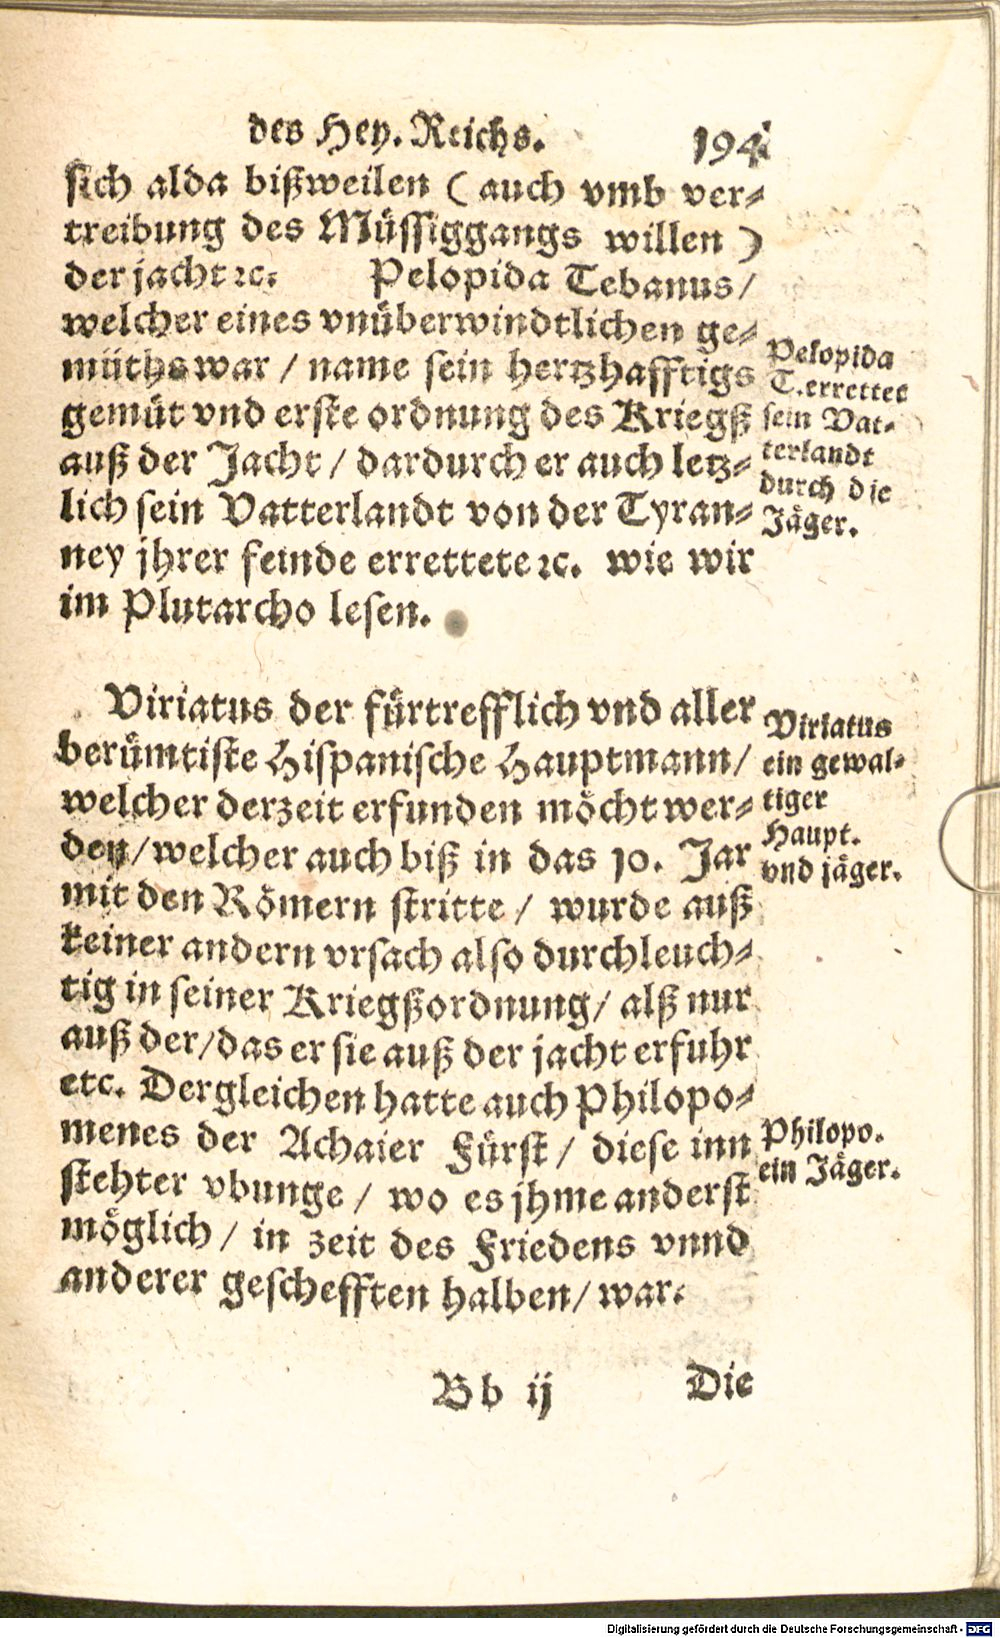 des Hey. Reichs.
194
sich alda bißweilen ( auch vmb ver-
treibung des Müssiggangs willen )
der jacht ꝛc. Pelopida Tebanus/
welcher eines vnüberwindtlichen ge-
müths war / name sein hertzhafftigs
gemüt vnd erste ordnung des Kriegß
auß der Jacht / dardurch er auch letz-
lich sein Vatterlandt von der Tyran-
ney jhrer feinde errettete ꝛc. wie wir
im Plutarcho lesen.
Pelopida
T. errettet
sein Vat-
terlandt
durch die
Jäger.
Viriatus der fürtrefflich vnd aller
berümtiste Hispanische Hauptmann/
welcher derzeit erfunden möcht wer-
den/welcher auch biß in das 10. Jar
mit den Römern stritte / wurde auß
keiner andern vrsach also durchleuch-
tig in seiner Kriegßordnung/ alß nur
auß der/das er sie auß der jacht erfuhr
etc. Dergleichen hatte auch Philopo-
menes der Achaier Fürst / diese inn
stehter vbunge / wo es jhme anderst
möglich / in zeit des Friedens vnnd
anderer geschefften halben/ war.
Viriatus
ein gewal-
tiger
Haupt.
vnd jäger.
Philopo.
ein Jäger.
Bb ij
Die
Digitalisierung gefördert durch die Deutsche Forschungsgemeinschaft - DFG